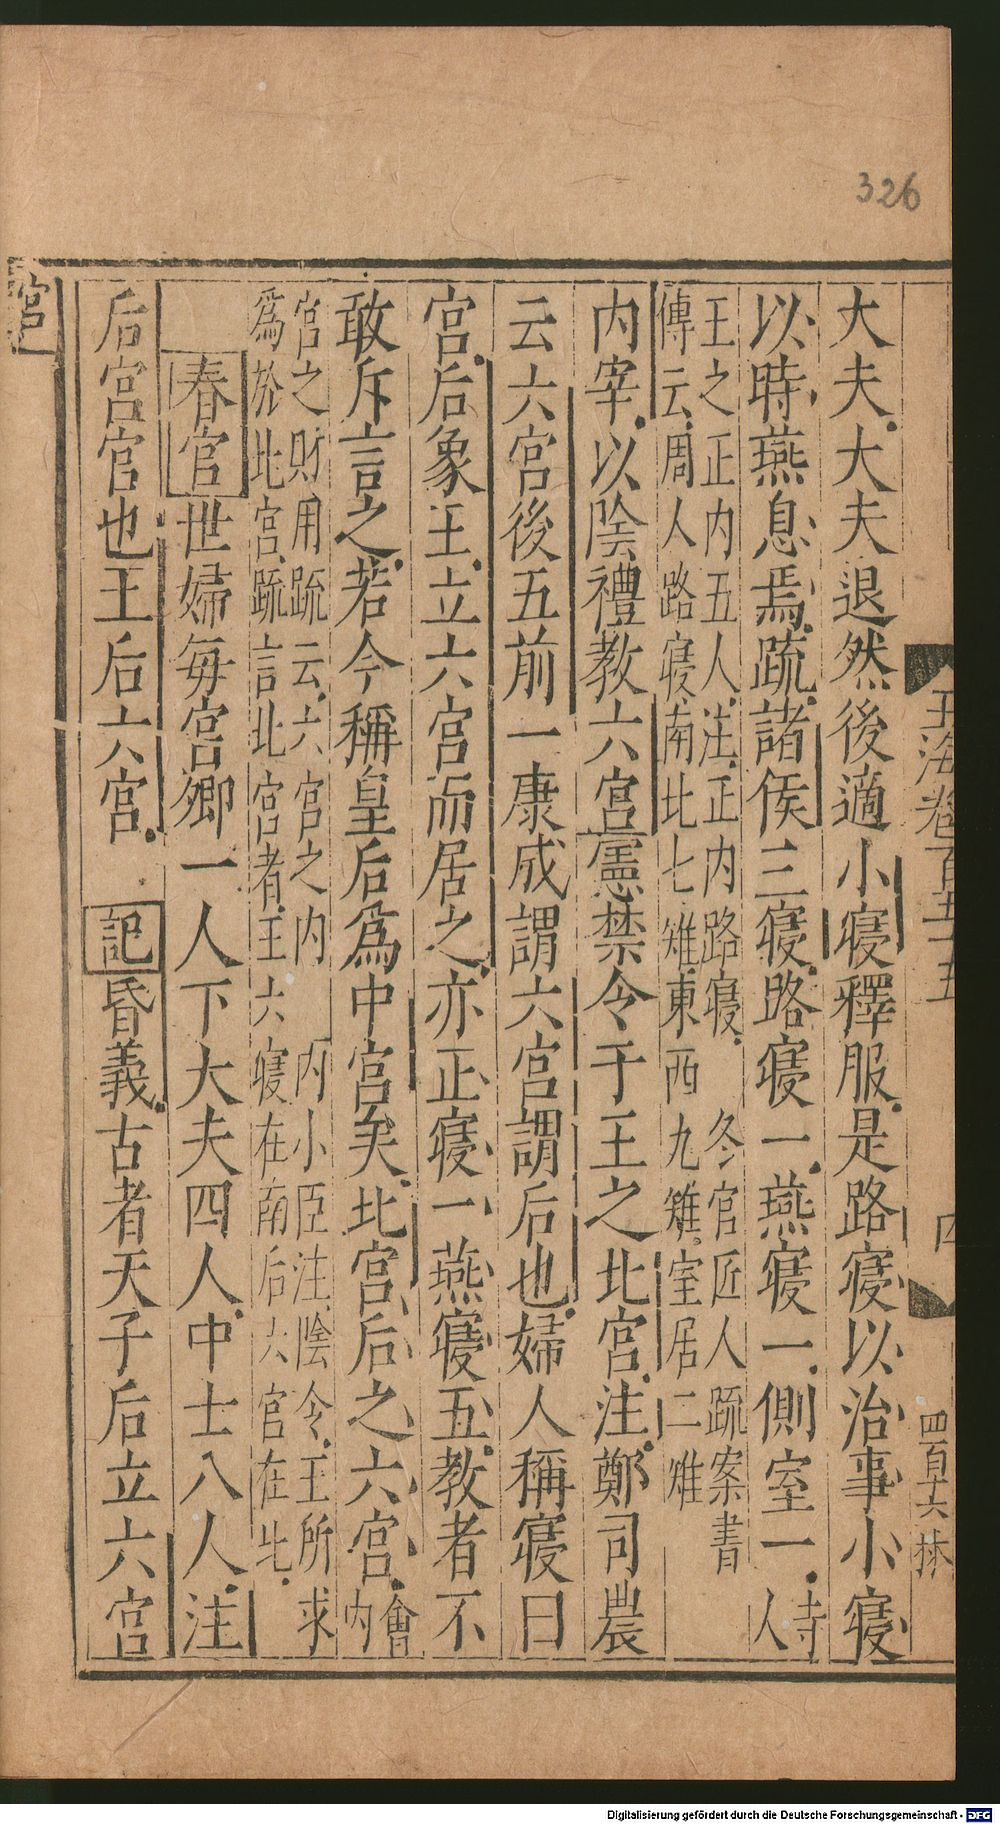 326
玉海卷百五十五
四
四百十六 林
大夫大夫退然後適小寢釋服是路寢以治事小寢
以時燕息焉疏諸侯三寢路寢一燕寢一側室一寺人
王之正内五人注正内路寢 冬官匠人疏案書
傳云周人路寢南北七雉東西九雉室居二雉
内宰以陰禮教六宮憲禁令于王之北宮注鄭司農
云六宮後五前一康成謂六宮謂后也婦人稱寢曰
宮后象王立六宮而居之亦正寢一燕寢五教者不
敢斥言之若今稱皇后爲中宮矣北宮后之六宮會内
宮之財用疏云六宮之内 内小臣注陰令王所求
爲於北宮疏言北宮者王六寢在南后六宮在北
春官世婦每宮卿一人下大夫四人中士八人注
后宮官也王后六宮 記昏義古者天子后立六宮
宮
Digitalisierung gefördert durch die Deutsche Forschungsgemeinschaft - DFG